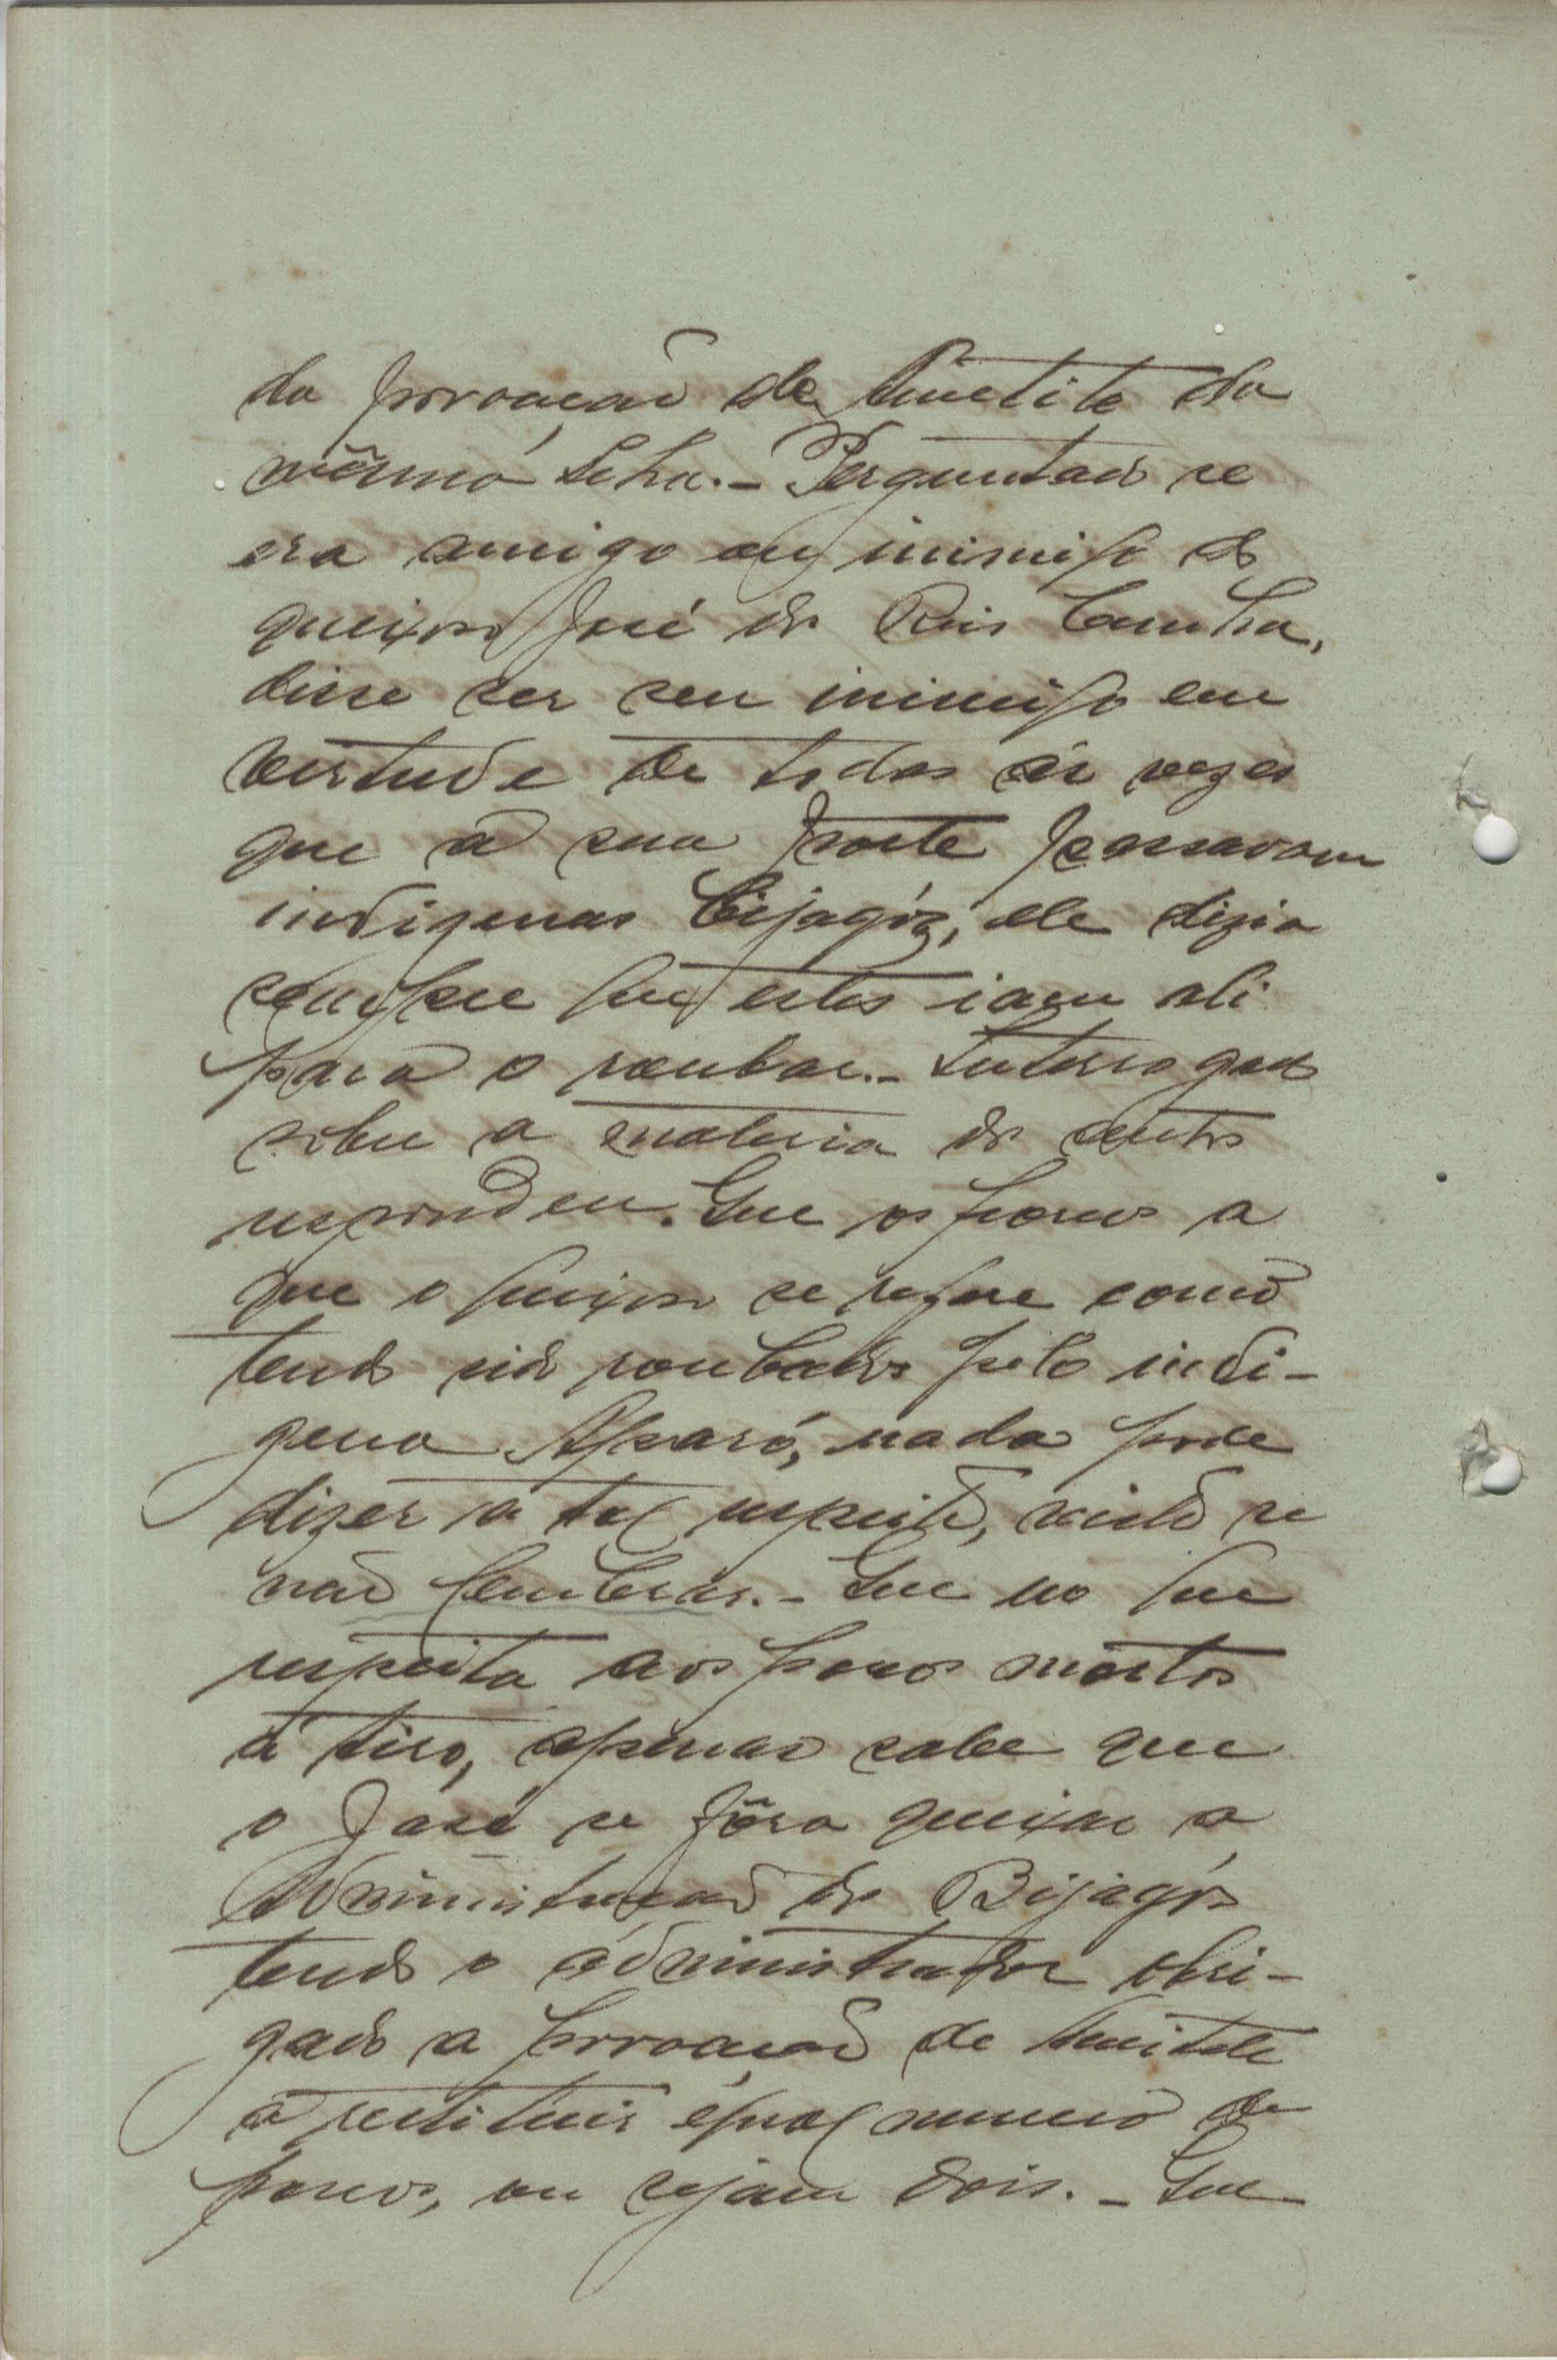 da povoação de da
mesma Ilha. - Perguntado se
era amigo ou inimigo do
queixoso José dos Reis Cunha,
disse ser seu inimigo em
virtude de todas as vezes
que á sua porta passavam
indigenas Bijagóz, ele dizia
sempre que estes iam ali
para o roubar. - Interrogado
sobre a materia dos autos
respondeu. Que os porcos a
que o queixoso se refere como
tendo sido roubados pelo indi-
gena Aparó, nada pode
dizer a tal respeito, visto se
não lembrar. - Que no que
respeita aos porcos mortos
a tiro, apenas sabe que
o José se fôra queixar a
Administração dos Bijagós
tendo o administrador obri-
gado a povoação de
a restituir egual numero de
porcos, ou sejam dois. - Que